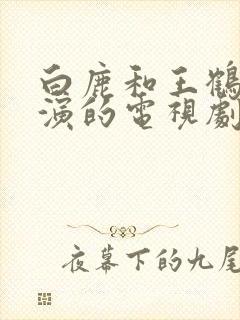 白鹿和王鶴
演的電視劇
夜幕下的九尾